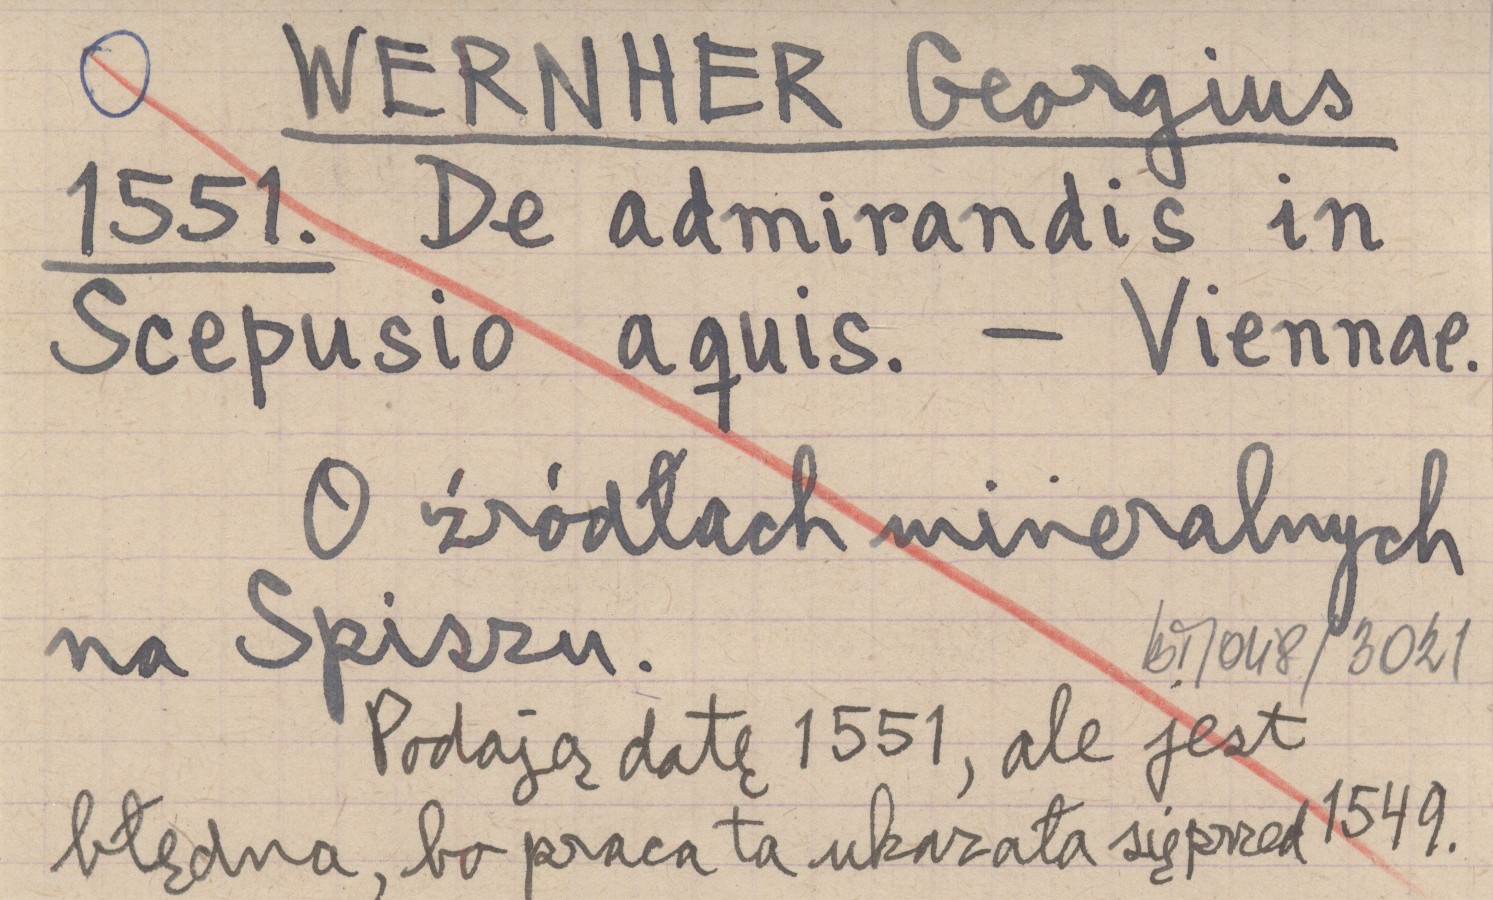 WERNHER Georgius
1551. De admirandis in
Scepusio aquis. — Viennae.
O źródłach mineralnych
na Spiszu.
3021
Podają datę 1551, ale jest
błędna, bo praca ta ukazała się przed 1549.